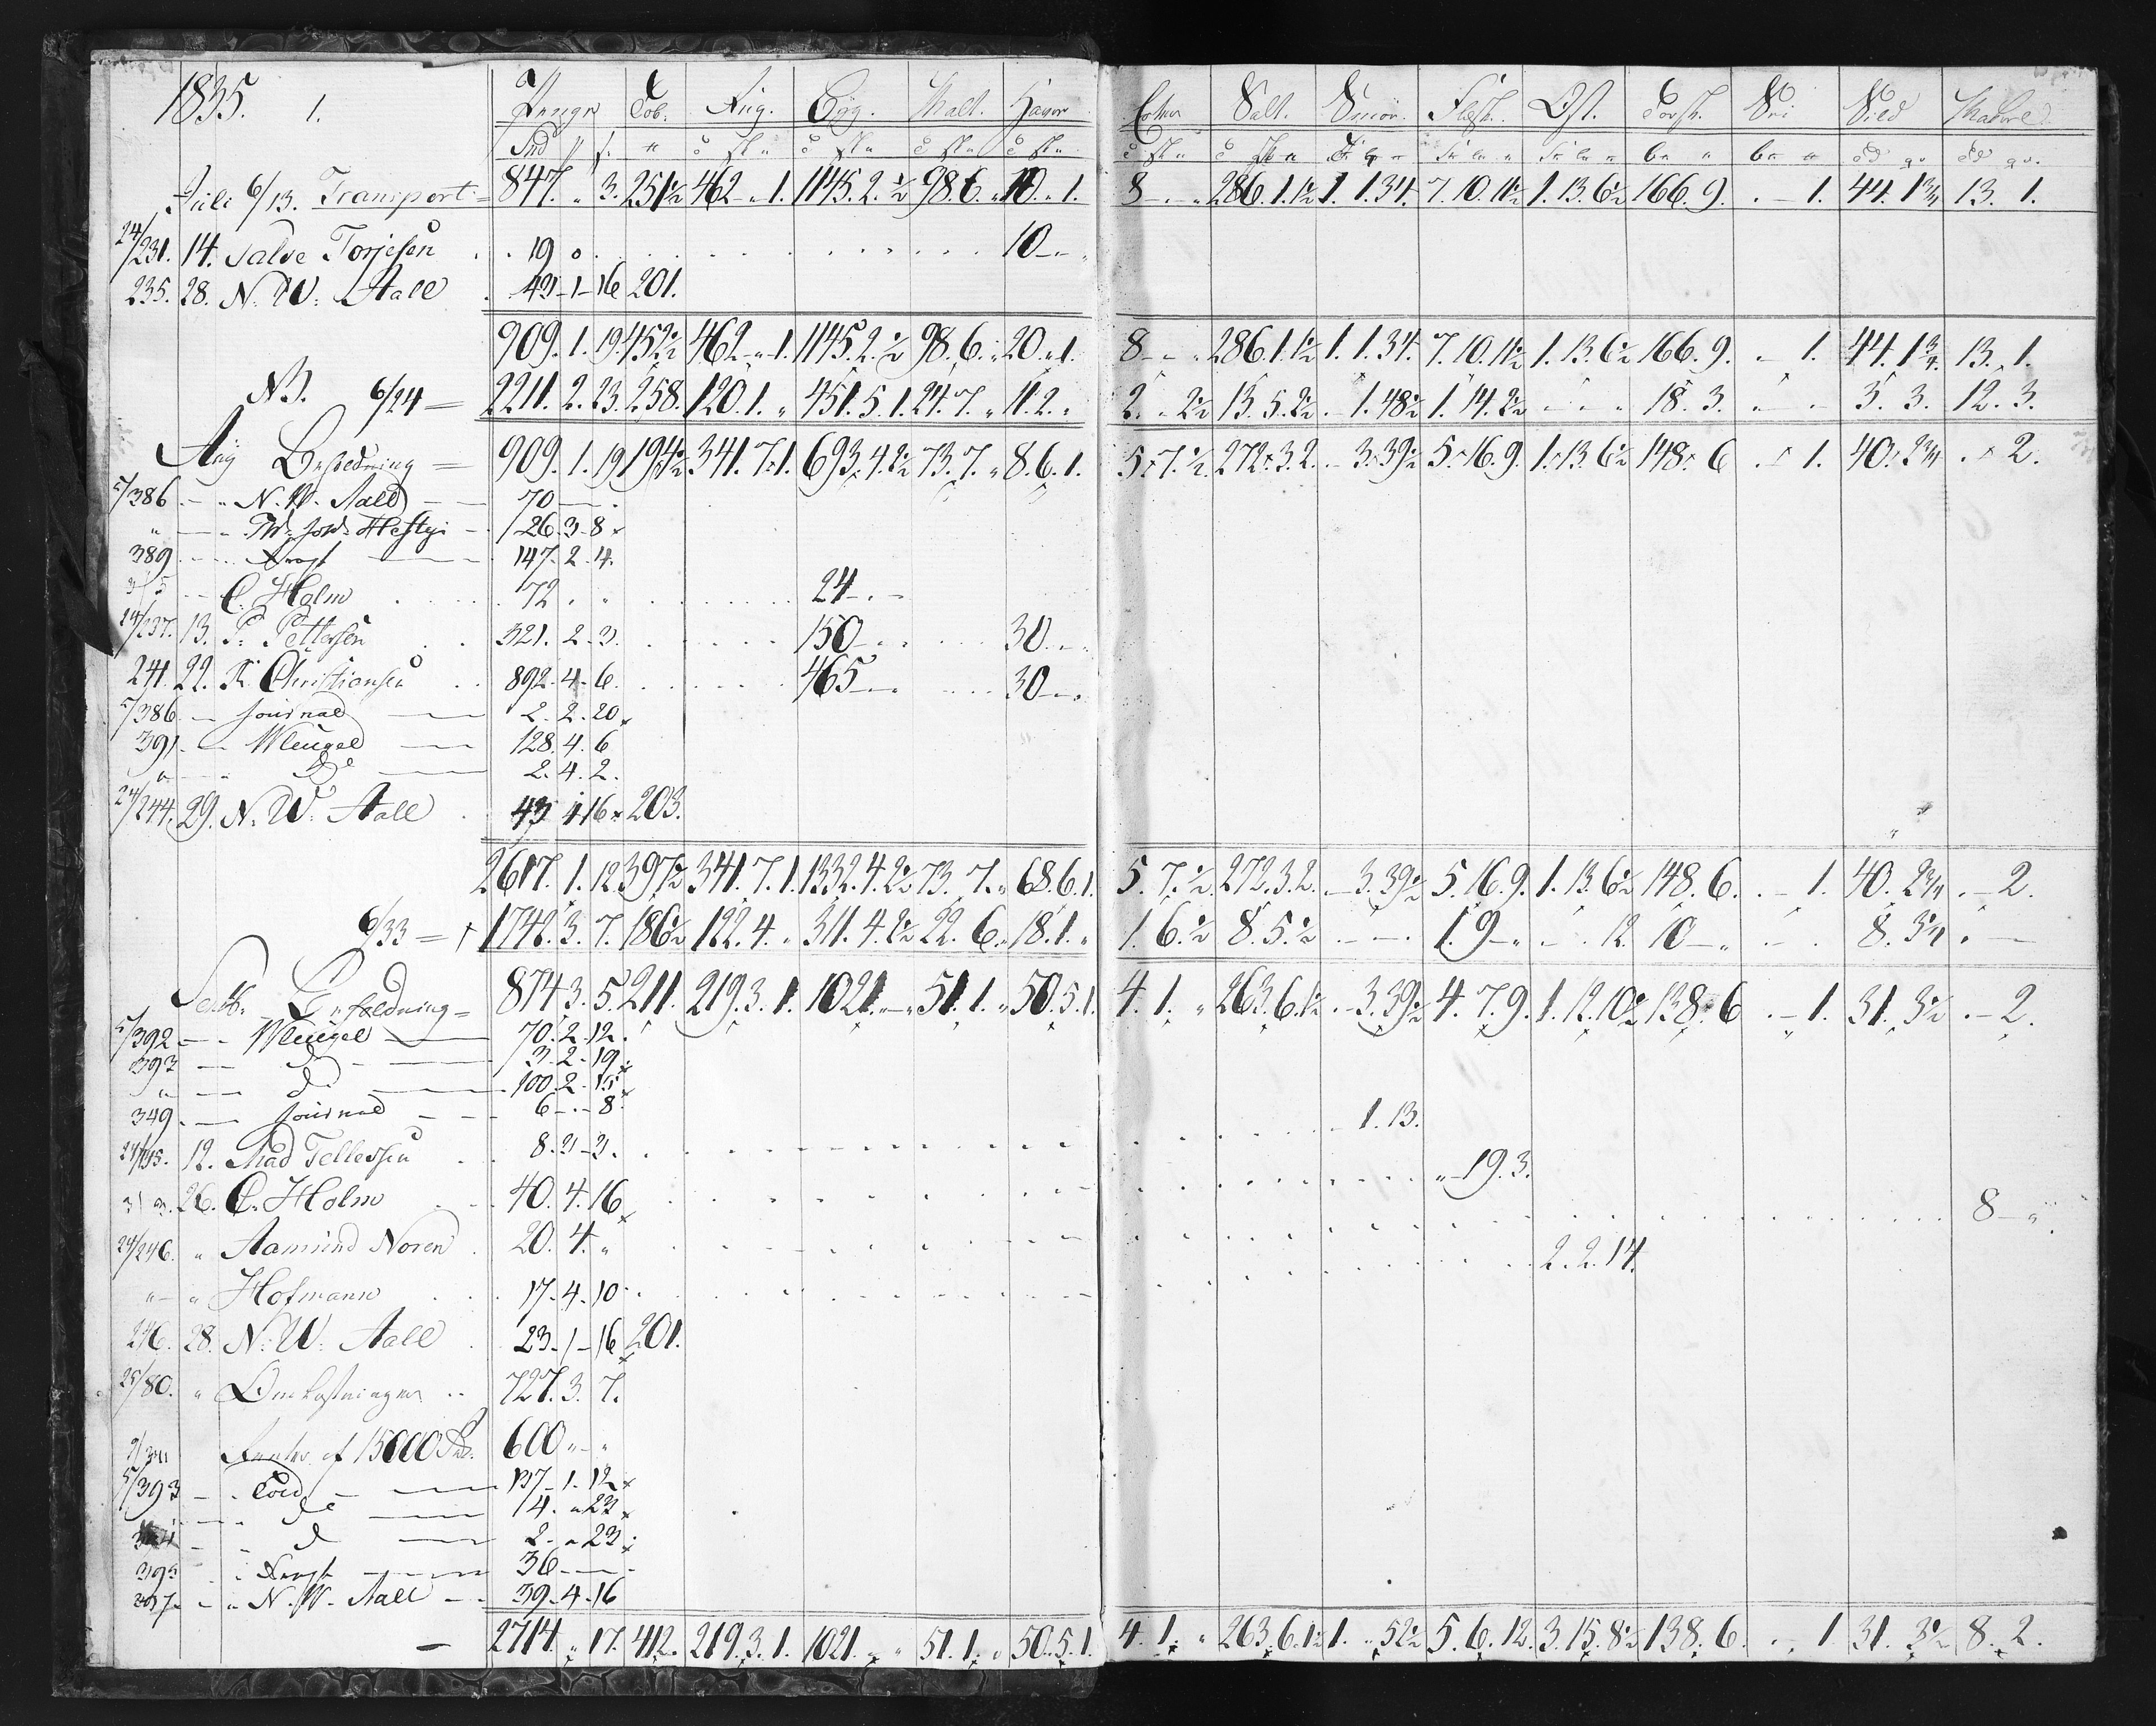 1835. 1. Penge Tob. Rug. Byg. Malt. Haver Salt. Smør. Flesk. Ost. Torsk.
Juli 6/13. Transport = 847. „ 3. 251½ 462 „ 1. 1145. 2. ½ 98. 6. „ 10. „ 1. 8 - . „ 286. 1. 1½ 1. 1. 34. 7. 10. 11½ 1. 13. 6½ 166. 9. . - 1. 44. 1¾ 13. 1.
24/231. 14. Salve Torjesen . . 19 0 . . . 10 - „ .
235. 28. N. W. Aall . 43 - 1 - 16 201.
909. 1. 19 452½ 462 - „ 1. 1145. 2. ½ 98. 6. „ 20. „ 1. 8 - „ 286. 1. 1½ 1. 1. 34. 7. 10. 11½ 1. 13. 6½ 166. 9. . - 1. 44. 1¾ 13. 1.
NB. 6/24 = 2211. 2. 23. 258. 120. 1. „ 451. 5. 1. 24. 7. „ 11. 2. „ 2. „ 2½ 13. 5. 2½ . 1. 48½ 1. 14. 2½ - „ - „ 18. 3. „ - 3. 3. 12. 3.
Aug Beholdning = 909. 1. 19 194½ 341. 7. 1. 693. 4. 2½ 73. 7. „ 8. 6. 1. 5. 7. ½ 272. 3. 2. - 3. 39½ 5. 16. 9. 1. 13. 6½ 148. 6 . - 1. 40. 2¾ . - 2.
5/386 - „ N. W. Aall - 70 - .
„ - „ - Hestj - 126. 3 - 8
389 - 147. 2. 4.
C. Holm . . 72 . „ . . . 24 - . -
24/237. 13. P. Pettersen . . 321. 2. 3. . . . 150 . . . 30 . - .
241. 22. K. Christiansen . . 892. 4. 6. . . . 465 - „ . . . 30 - „ .
5/386 - Journal - 2. 2. 20
391 - Wleugel - 128. 4. 6
„ - „ do - 2. 4. 2.
24/244. 29. N. W. Aall . 43 4 16 203.
2617. 1. 12. 397½ 341. 7. 1. 1332. 4. 2½ 73. 7. „ 68. 6. 1. 5. 7. ½ 272. 3. 2. - 3. 39½ 5. 16. 9. 1. 13. 6½ 148. 6. . - 1. 40. 2¾ . - 2.
6/33 = 1742. 3. 7. 186½ 122. 4. „ 311. 4. 2½ 22. 6. „ 18. 1. „ 1. 6. ½ 8. 5. ½ - - . 1. 9 - „ - . 12. 10 - „ - . 8. 3¼ . -
Septb. Beholdning = 874 3. 5. 211. 219. 3. 1. 1021. - „ 51. 1. „ 50. 5. 1. 4. 1. „ 263. 6. 1½ - 3. 39½ 4. 7. 9. 1. 12. 10½ 138. 6 . - 1. 31. 3½ . - 2.
5/392 - - Wleugel - 70. 2. 12.
393 - do - 3. 2. 19
„ - do - 100. 2. 15
349 - Journal - 6 - . - 8
12. Mad Tellefsen . . 8. 3 - 3. . . . 1. 13.
26. C. Holm . . 40. 4. 16 . . . „ 19. 3.
24/246. „ Aamund Noren . 20. 4. „ . . . 8 - „ .
„ - „ Hofmann . . 17. 4. 10 . . . 2. 2. 14.
246. 28. N. W. Aall . 23. 1 - 16 201.
25/80. „ Omkostninger . . 727. 3. 7.
Renter af 15000 Spd. 600 „ - „
5/393 - - 137 - 1. 12
do - 14. „ 23
do - 2 - „ 23
36 - - -
„ N. W. Aall - - 39 - 4 - 16
- 2714. „ 17. 412. 219. 3. 1. 1021. - „ 51. 1. „ 50. 5. 1. 4. 1. „ 263. 6. 1½ 1. „ 52½ 5. 6. 12. 3. 15. 8½ 138. 6. . - 1. 31. 3½ 8. 2.